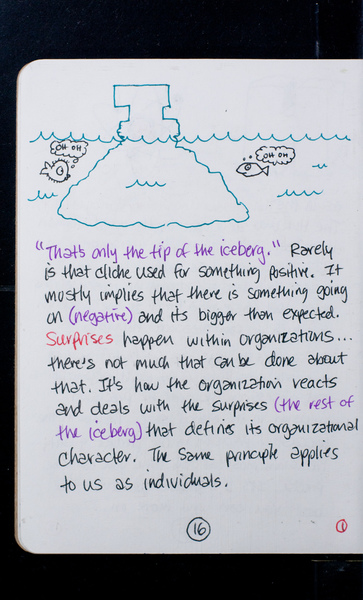 OH OH
OH OH
"That's only the tip of the iceberg." Rarely
is that cliche used for something positive. It
mostly implies that there is something going
on (negative) and its bigger than expected.
Surprises happen within organizations...
there's not much that can be done about
that. It's how the organization reacts
and deals with the surprises (the rest of
the iceberg) that defines its organizational
character. The same principle applies
to us as individuals.
16
1